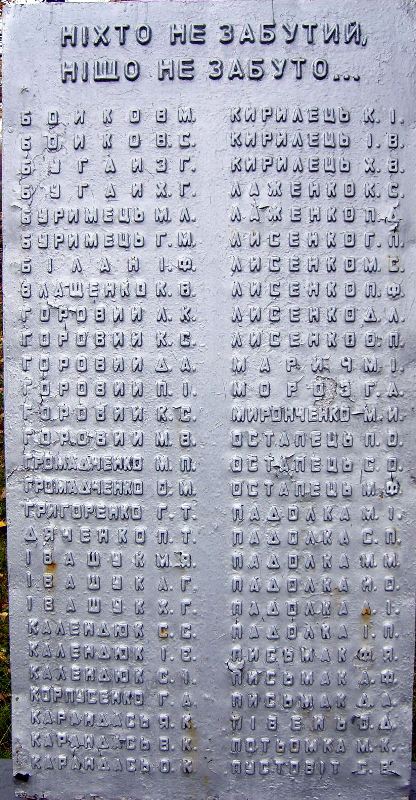 НІХТО НЕ ЗАБУТИЙ,
НІЩО НЕ ЗАБУТО...
БОЙКО В М.
БОЙКО В С.
БУГАЙ З Г.
БУГАЙ Х. Г.
БУРИМЕЦЬ М. Л.
БУРИМЕЦЬ Г. М.
БІЛАН І. Ф.
ВЛАЩЕНКО К. В.
ГОРОВИЙ Л. К.
ГОРОВИЙ К. С.
ГОРОВИЙ Д. А.
ГОРОВИЙ П. І.
ГОРОВИЙ К. С.
ГОРОВИЙ М. В.
ГРОМАДЧЕНКО М. П.
ГРОМАДЧЕНКО О. М.
ГРИГОРЕНКО Г. Т.
ДЯЧЕНКО П. Т.
ІВАЩУК М. Я.
ІВАЩУК А. Г.
ІВАЩУК Х. Г.
КАЛЕНДЮК С. С.
КАЛЕНДЮК І. Є.
КАЛЕНДЮК С. І.
КОРПУСЕНКО Г. А.
КАРАНДАСЬ Я. К.
КАРАНДАСЬ В. К.
КАРАНДАСЬ О. К.
КИРИЛЕЦЬ К. І.
КИРИЛЕЦЬ І. В.
КИРИЛЕЦЬ Х. В.
ЛАЖЕНКО К. С.
ЛАЖЕНКО П.
ЛИСЕНКО Г. П.
ЛИСЕНКО М. С.
ЛИСЕНКО П. Ф.
ЛИСЕНКО Д. Л.
ЛИСЕНКО О. П.
МАРИЧ М. І.
МОРОЗ Г. А.
МИРОНЧЕНКО М. И.
ОСТАПЕЦЬ П. О.
ОСТАПЕЦЬ С. О.
ОСТАПЕЦЬ М. Ф.
ПАДОЛКА М. І.
ПАДОЛКА С. П.
ПАДОЛКА М. М.
ПАДОЛКА Н. О.
ПАДОЛКА А. І.
ПАДОЛКА І. П.
ПИСЬМАК Ф. Я.
ПИСЬМАК А. Ф.
ПИСЬМАК Д. А.
ПІВЕНЬ О. Д.
ПОТЬОМКА М. К.
ПУСТОВІТ С. Е.